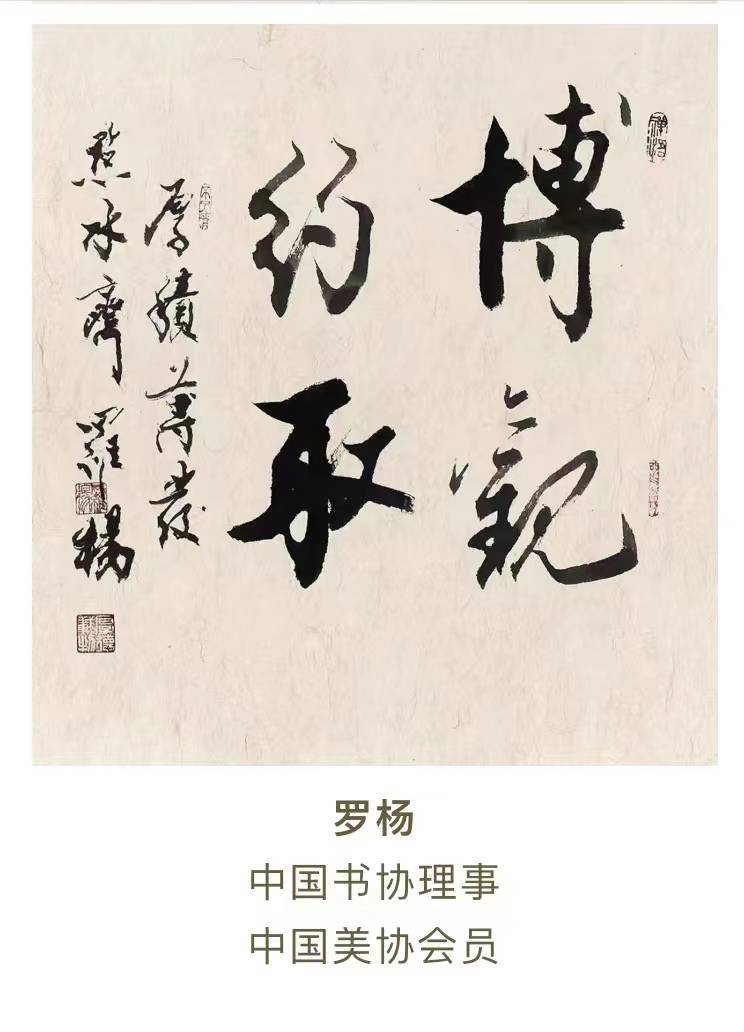 博觀
約取
厚積薄發
點水齋羅楊
罗杨
中国书协理事
中国美协会员